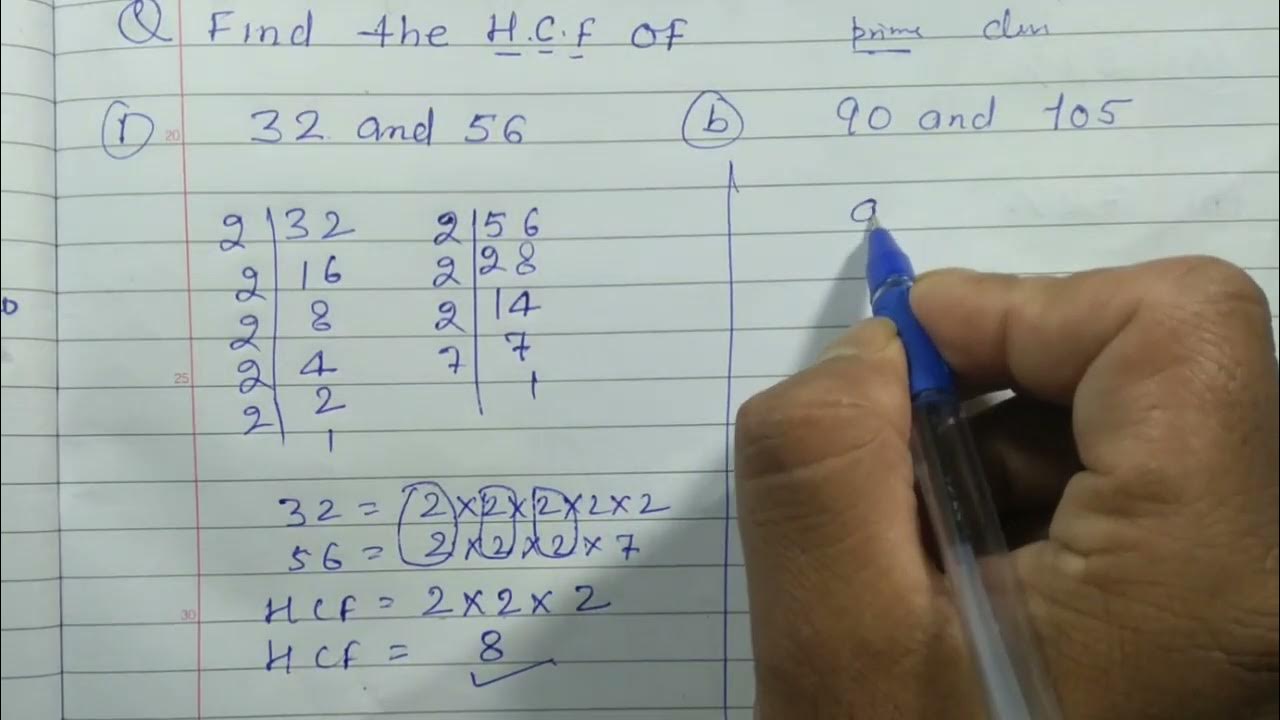 Q Find the H.C.F of
prime
① 32 and 56
ⓑ 90 and 105
2 | 32
2 | 16
2 | 8
2 | 4
2 | 2
1
2 | 56
2 | 28
2 | 14
7 | 7
1
32 = 2×2×2×2×2
56 = 2×2×2×7
HCF = 2×2×2
HCF = 8
9
20
25
30